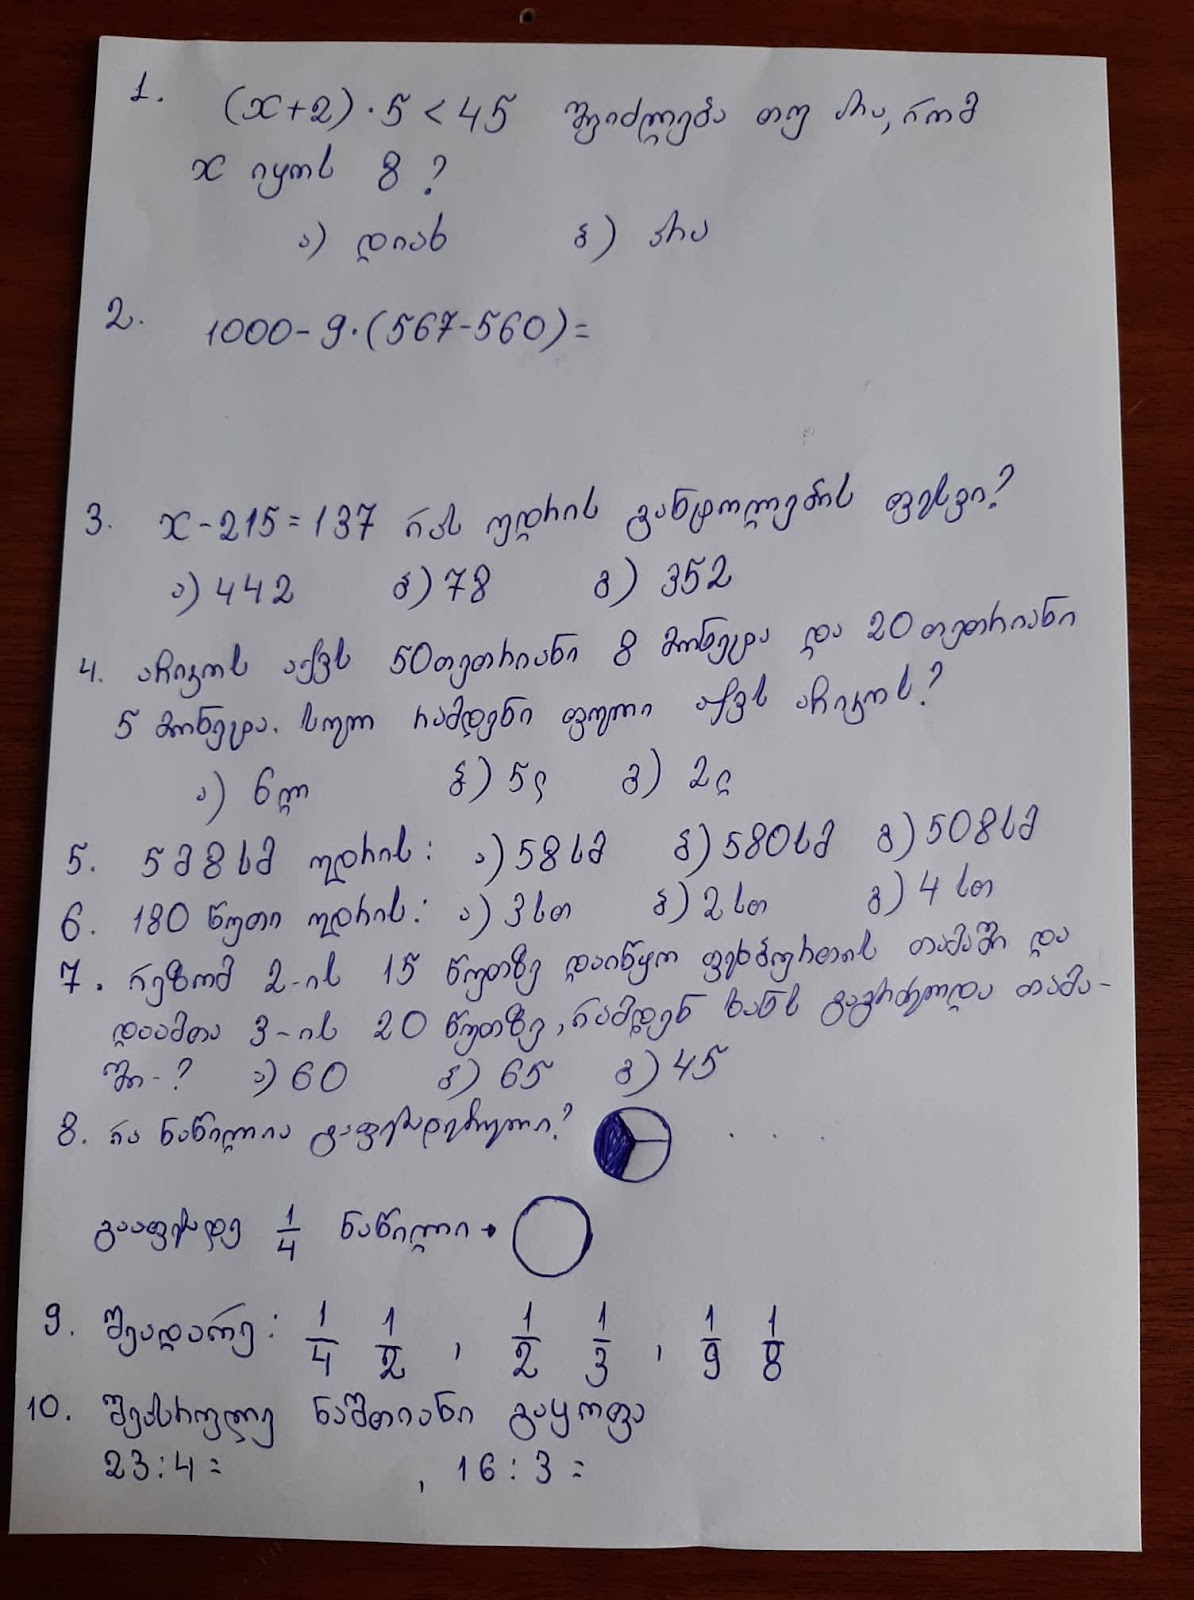 1. (x+2)·5<45 შეიძლება თუ არა, რომ
x იყოს 8?
ა) დიახ ბ) არა
2. 1000-9·(567-560)=
3. x-215=137 რას უდრის განტოლების ფესვი?
ა) 442 ბ) 78 გ) 352
4. აჩიკოს აქვს 50თეთრიანი 8 მონეტა და 20თეთრიანი
5 მონეტა. სულ რამდენი ფული აქვს აჩიკოს?
ა) 6ლ ბ) 5ლ გ) 2ლ
5. 5მ8სმ უდრის: ა) 58სმ ბ) 580სმ გ) 508სმ
6. 180 წუთი უდრის: ა) 3სთ ბ) 2სთ გ) 4სთ
7. რეზომ 2-ის 15 წუთზე დაიწყო ფეხბურთის თამაში და
დაამთა 3-ის 20 წუთზე, რამდენ ხანს გაგრძელდა თამა-
ში-? ა) 60 ბ) 65 გ) 45
8. რა ნაწილია გაფერადებული?
გააფერადე 1/4 ნაწილი
9. შეადარე: 1/4 1/2 , 1/2 1/3 , 1/9 1/8
10. შეასრულე ნაშთიანი გაყოფა
23:4= , 16:3=